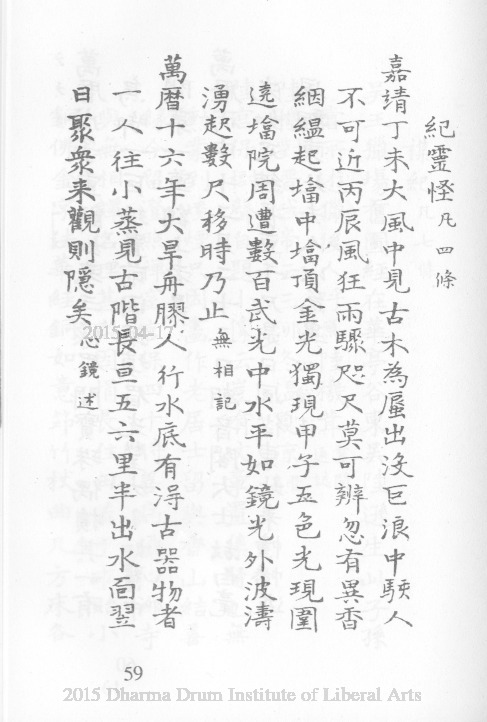 紀靈怪凡四條
嘉靖丁未大風中見古木為蜃出沒巨浪中駭人
不可近丙辰風狂雨驟咫尺莫可辨忽有異香
絪縕起㙮中㙮頂金光獨現甲子五色光現圍
遶㙮院周遭數百武光中水平如鏡光外波濤
湧起數尺移時乃止無相記
萬曆十六年大旱舟膠人行水底有淂古器物者
一人往小蒸見古階長亘五六里半出水面翌
日聚衆来觀則隱矣心鏡述
2015-04-17
59
2015 Dharma Drum Institute of Liberal Arts